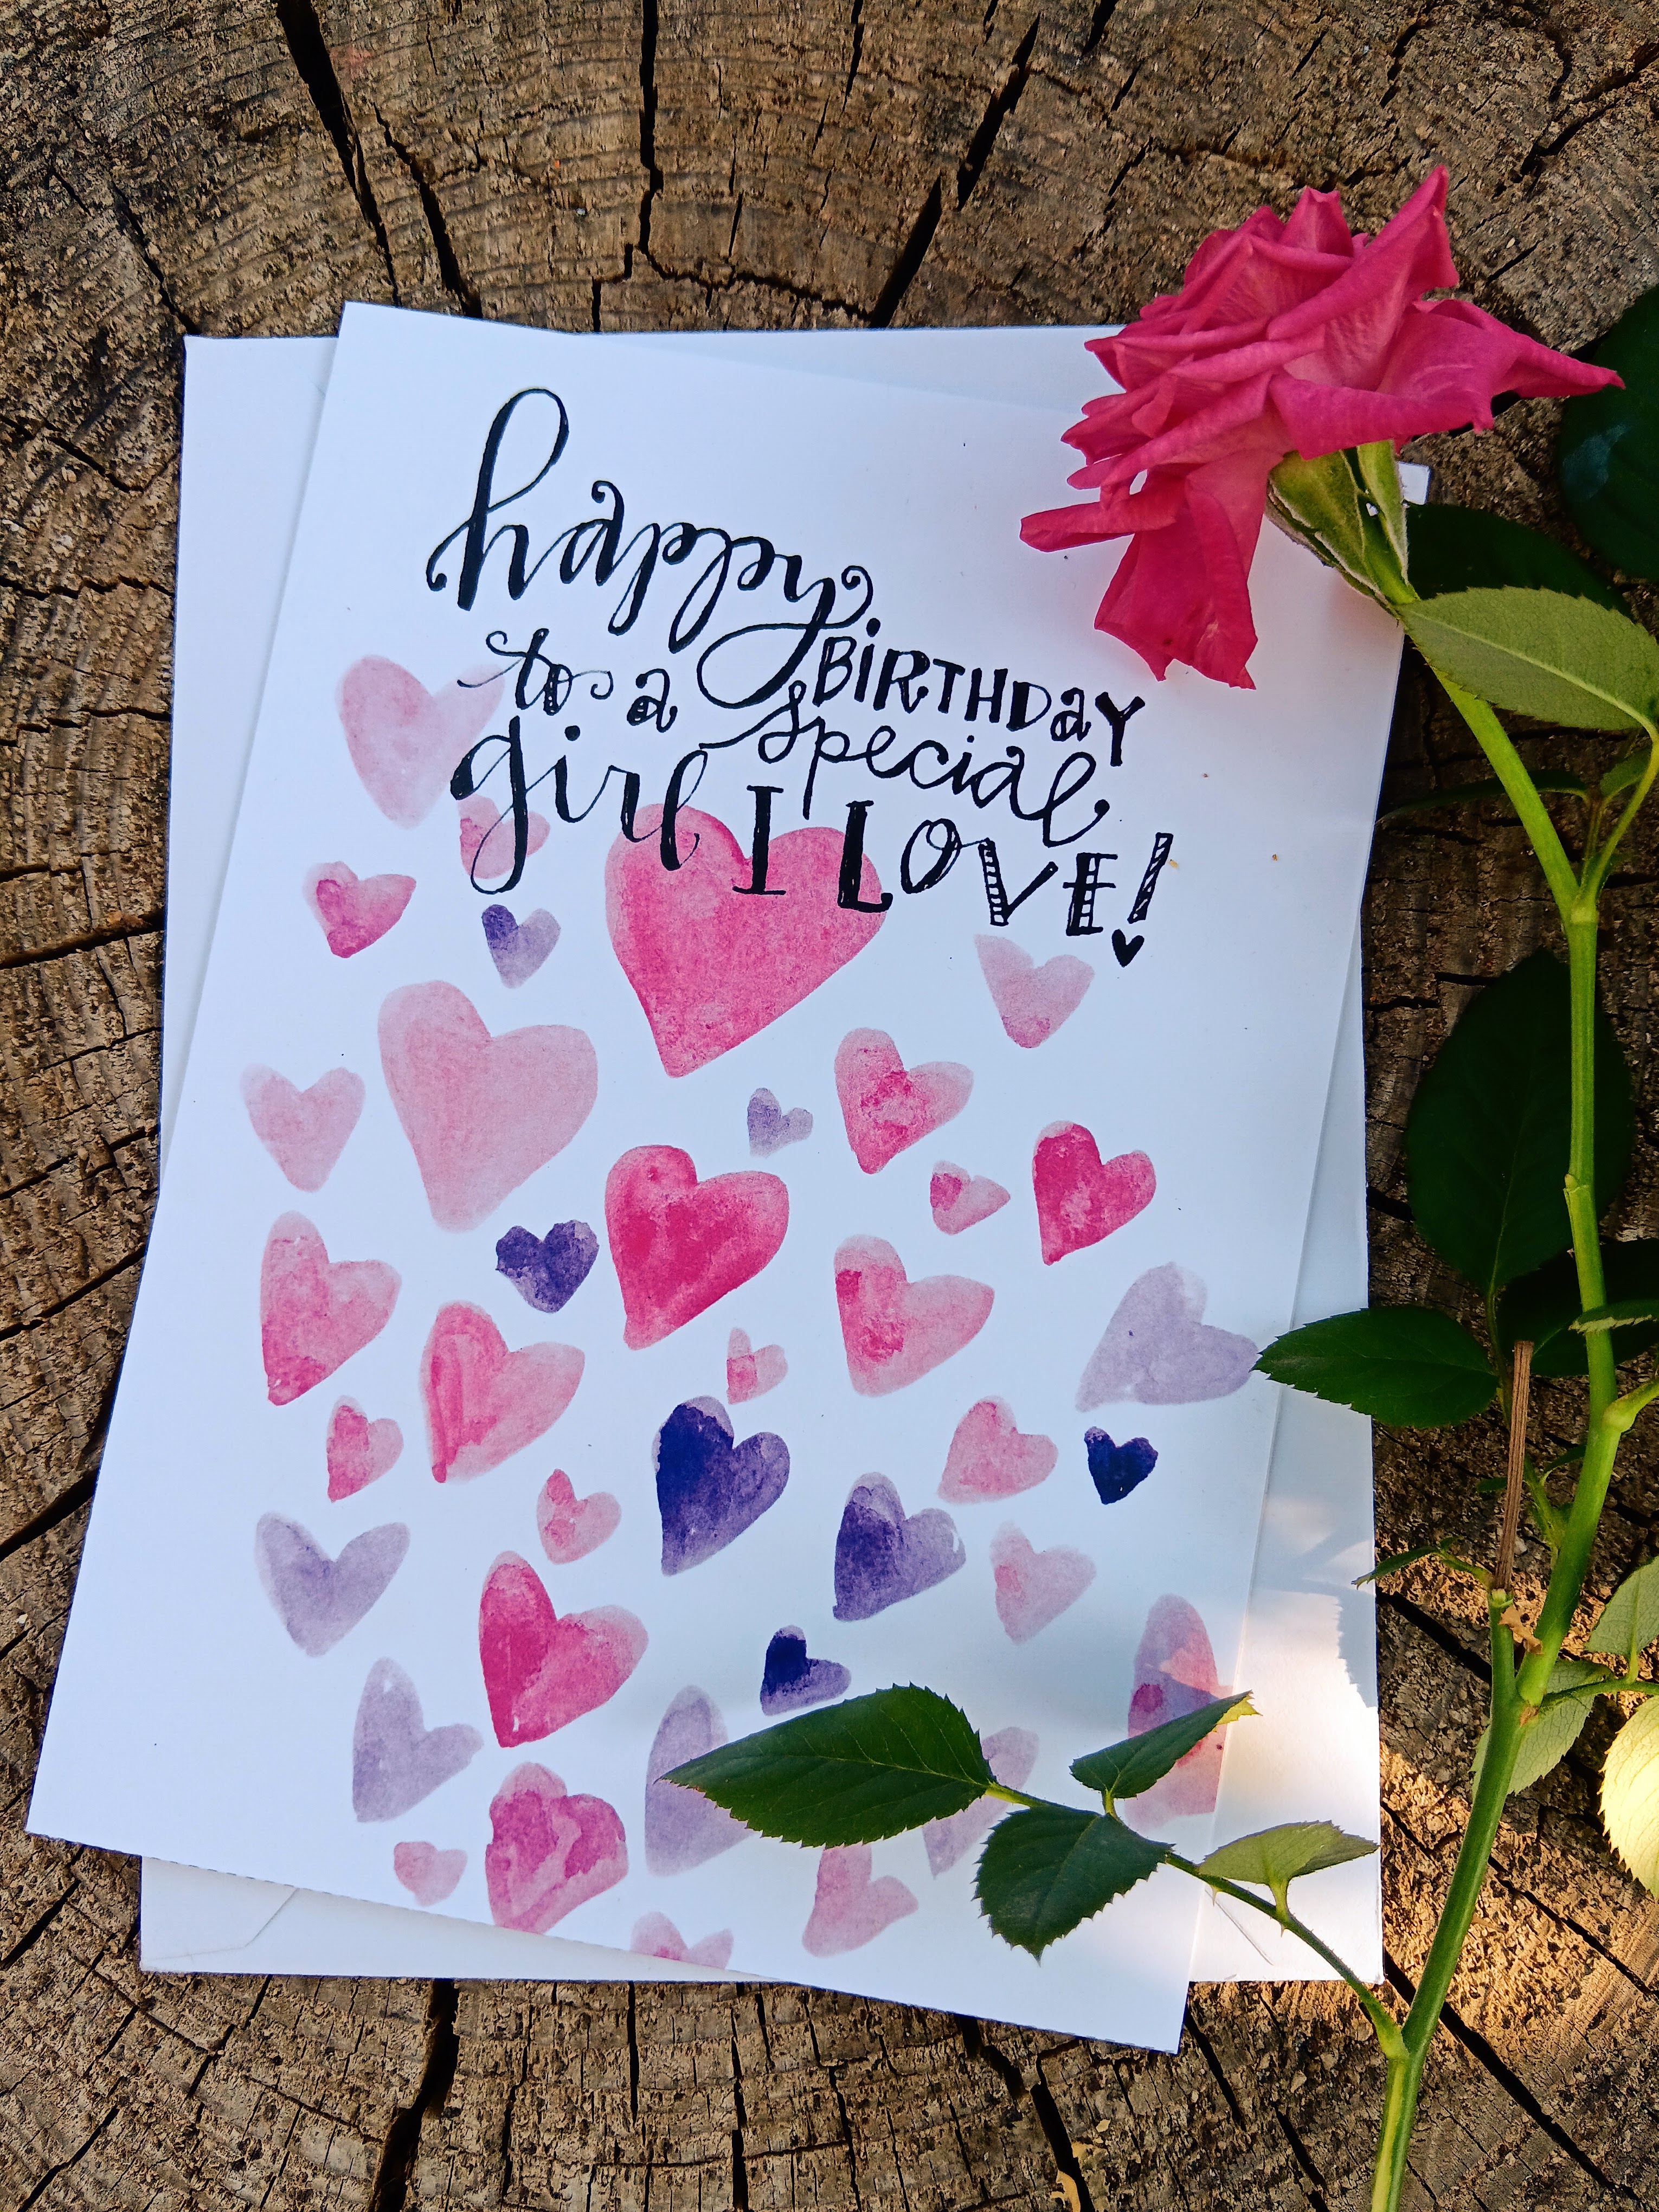 happy
BiRTHDaY
to a special
girl I LOVE!